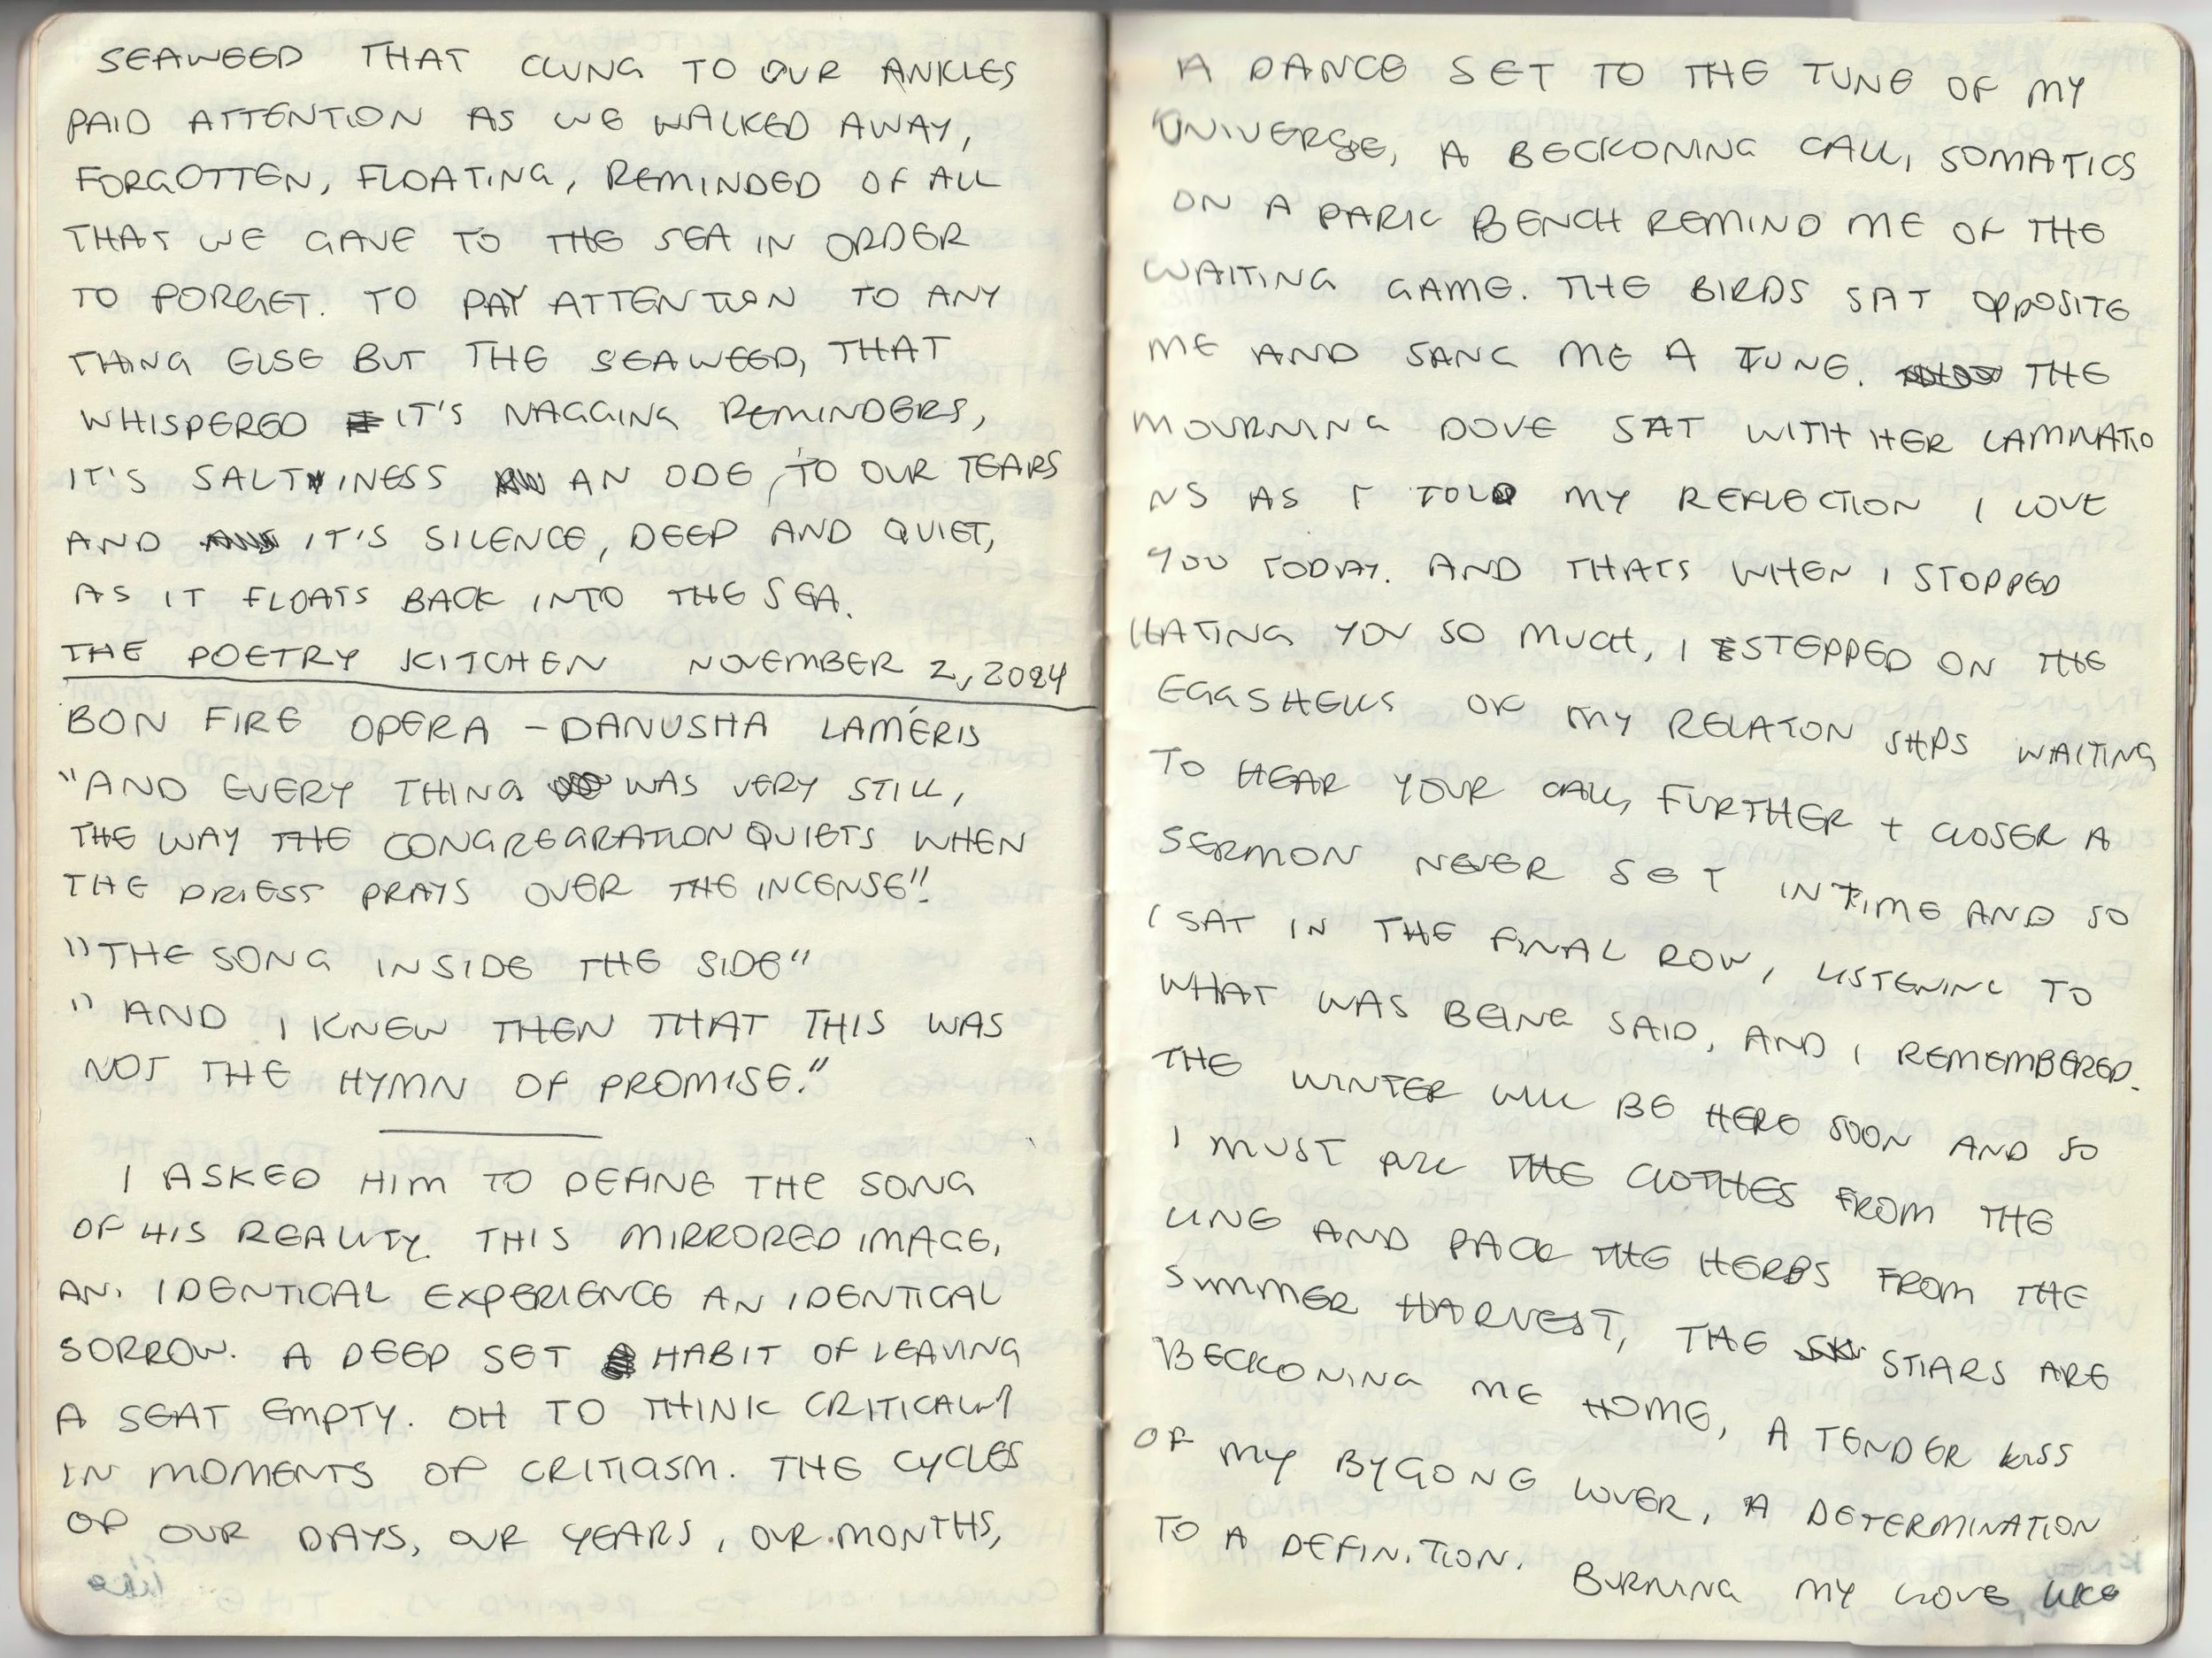 SEAWEED THAT CLUNG TO OUR ANKLES
PAID ATTENTION AS WE WALKED AWAY,
FORGOTTEN, FLOATING, REMINDED OF ALL
THAT WE GAVE TO THE SEA IN ORDER
TO FORGET. TO PAY ATTENTION TO ANY
THING ELSE BUT THE SEAWEED, THAT
WHISPERED IT'S NAGGING REMINDERS,
IT'S SALTINESS AN ODE, TO OUR TEARS
AND IT'S SILENCE, DEEP AND QUIET,
AS IT FLOATS BACK INTO THE SEA.
THE POETRY KITCHEN NOVEMBER 2, 2024
BON FIRE OPERA - DANUSHA LAMÉRIS
"AND EVERY THING WAS VERY STILL,
THE WAY THE CONGREGRATION QUIETS WHEN
THE PRIEST PRAYS OVER THE INCENSE".
"THE SONG INSIDE THE SIDE"
"AND I KNEW THEN THAT THIS WAS
NOT THE HYMN OF PROMISE."
I ASKED HIM TO DEFINE THE SONG
OF HIS REALITY. THIS MIRRORED IMAGE,
AN IDENTICAL EXPERIENCE AN IDENTICAL
SORROW. A DEEP SET HABIT OF LEAVING
A SEAT EMPTY. OH TO THINK CRITICALLY
IN MOMENTS OF CRITICISM. THE CYCLES
OF OUR DAYS, OUR YEARS, OUR MONTHS,
A DANCE SET TO THE TUNE OF MY
UNIVERSE, A BECKONING CALL, SOMATICS
ON A PARK BENCH REMIND ME OF THE
WAITING GAME. THE BIRDS SAT OPPOSITE
ME AND SANG ME A TUNE. THE
MOURNING DOVE SAT WITH HER LAMINATIO
NS AS I TOLD MY REFLECTION I LOVE
YOU TODAY. AND THATS WHEN I STOPPED
HATING YOU SO MUCH, I STEPPED ON THE
EGGSHELLS OF MY RELATON SHPS WAITING
TO HEAR YOUR CALL, FURTHER + CLOSER A
SERMON NEVER SET IN TIME AND SO
I SAT IN THE FINAL ROW, LISTENING TO
WHAT WAS BEING SAID, AND I REMEMBERED.
THE WINTER WILL BE HERE SOON AND SO
I MUST PULL THE CLOTHES FROM THE
LINE AND PACK THE HERBS FROM THE
SUMMER HARVEST, THE STARS ARE
BECKONING ME HOME, A TENDER KISS
OF MY BYGONE LOVER, A DETERMINATION
TO A DEFINITION. BURNING MY LOVE LIKE